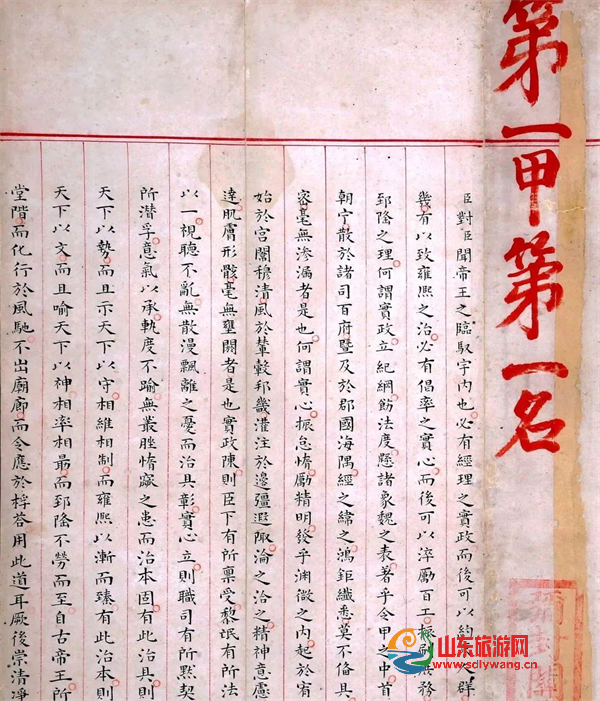 第一甲第一名
臣對臣聞帝王之臨馭宇内也必有經理之實政而後可以約人群
幾有以致雍熙之治必有倡率之實心而後可以淬勵百工振刷庶務
郅隆之理何謂實政立紀綱飭法度懸諸象魏之表著乎令甲之中首
朝寧散於諸司百府暨及於郡國海隅經之緯之鴻鉅纖悉莫不備具
毫無滲漏者是也何謂實心振怠惰勵精明發乎淵微之内起於宥
始於宮闈穆清風於輦轂邦畿灌注於邊疆遐陬淪之洽之精神意慮
達肌膚形骸毫無壅閼者是也實政陳則臣下有所稟受黎氓有所法
以一視聽不亂無散漫飄離之憂而治具彰實心立則職司有所默契
所潛孚意氣以承軌度不踰無叢脞惰窳之患而治本固有此治具則
天下以勢而且示天下以守相維相制而雍熙以漸而臻有此治本則
天下以文而且喻天下以神相率相勗而郅隆不勞而至自古帝王所
堂階而化行於風馳不出廟廊而令應於桴答用此道耳厥後崇清凈
山东旅游网
www.sdlywang.cn